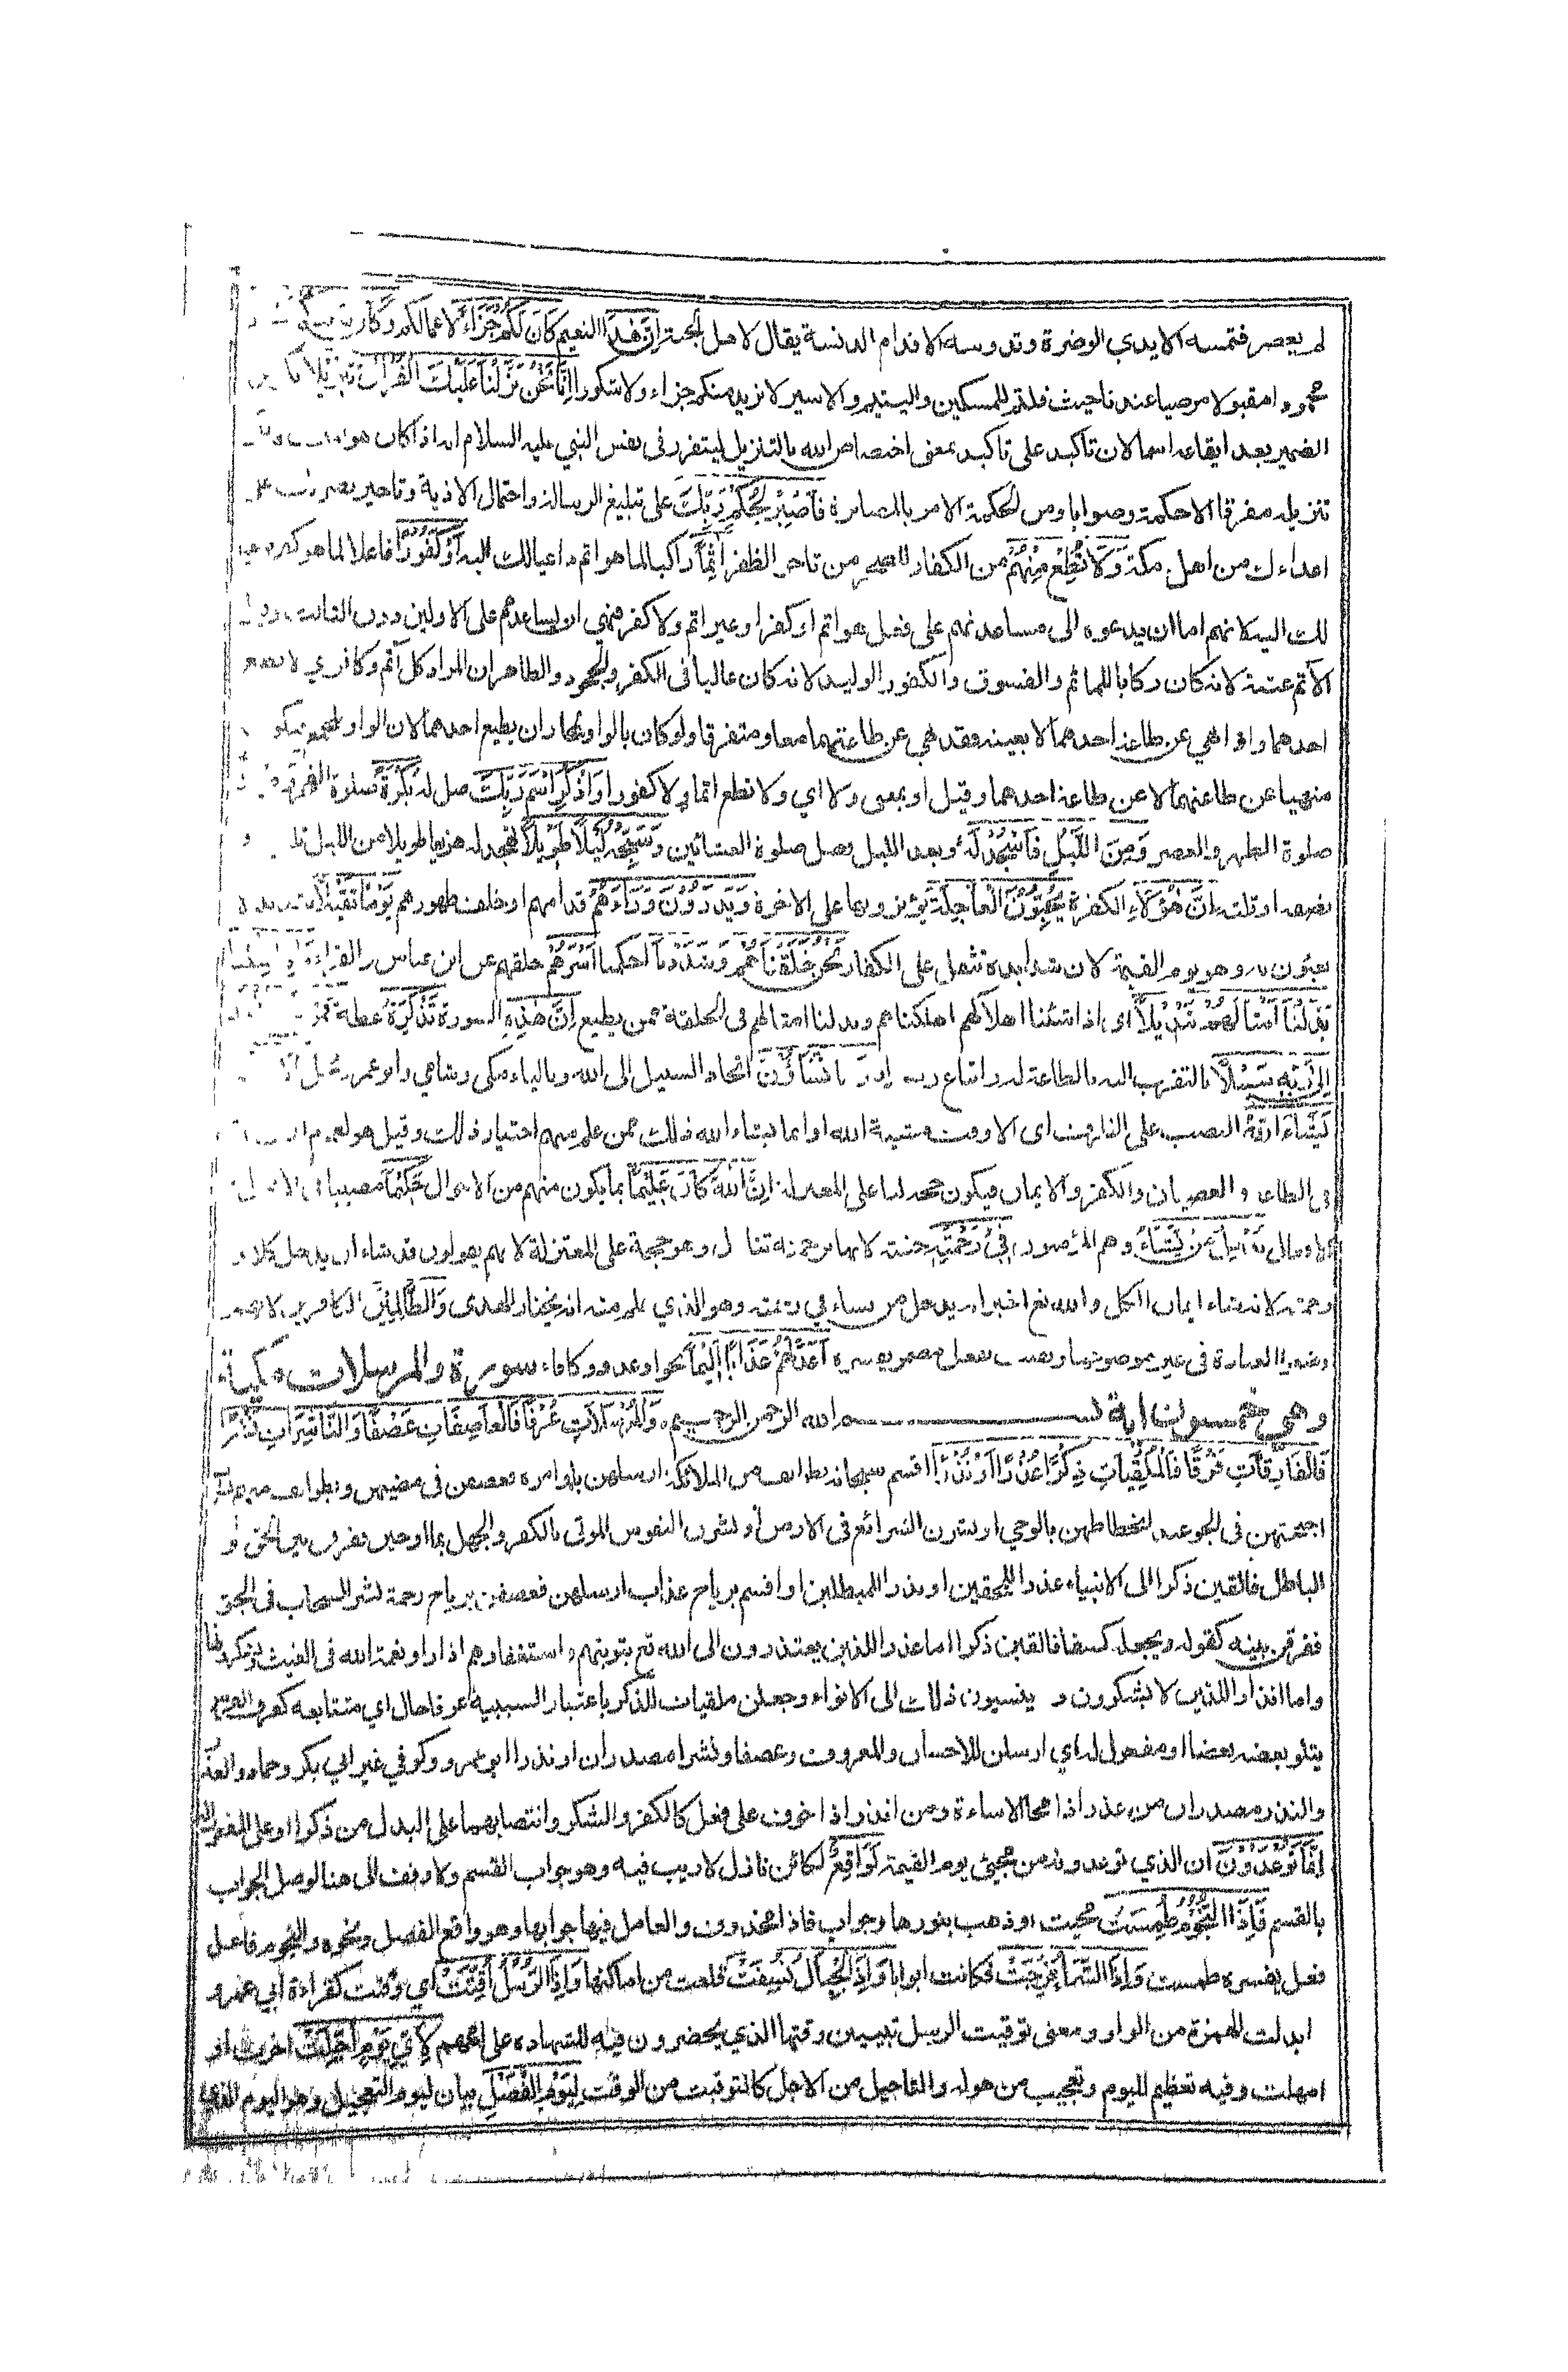 لم يعصر فتمسه الايدي الوضرة وتدوسه الاقدام الدنسة يقال لاهل الجنة اِنَّ هٰذَا النعيم كَانَ لَكُمْ جَزَاءً لاعمالكم وَكَانَ
محمودا مقبولا مرضيا عندنا حيث قلتم للمسكين واليتيم والاسير لا نريد منكم جزاء ولا شكورا اِنَّا نَحْنُ نَزَّلْنَا عَلَيْكَ الْقُرْآنَ تَنْزِيلًا
الضمير بعد ايقاعه اسما لان تاكيد على تاكيد بمعنى اختصاص الله بالتنزيل ليتقرر في نفس النبي عليه السلام انه اذا كان هو
تنزيله مفرقا الا حكمة وصوابا ومن الحكمة الامر بالمصابرة فَاصْبِرْ لِحُكْمِ رَبِّكَ على تبليغ الرسالة واحتمال الاذية وتاخير نصرتك على
اعداءك من اهل مكة وَلَا تُطِعْ مِنْهُمْ من الكفار للضجر من تاخر الظفر آثِمًا راكبا لما هو اثم داعيا لك اليه اَوْ كَفُورًا فاعلا لما هو كفر
لك اليه لانهم اما ان يدعوه الى مساعدتهم على فعل هو اثم او كفر او غير اثم ولا كفر فنهي ان يساعدهم على الاولين دون الثالث
الآثم عتبة لانه كان ركابا للمآثم والفسوق والكفور الوليد لانه كان غاليا في الكفر والجحود والظاهر ان المراد كل آثم وكافر اي لا تطع
احدهما واذا نهي عن طاعة احدهما لا بعينه فقد نهي عن طاعتهما معا ومتفرقا ولو كان بالواو لجاز ان يطيع احدهما لان الواو للجمع فيكون
منهيا عن طاعتهما لا عن طاعة احدهما وقيل او بمعنى ولا اي ولا تطع اثما ولا كفورا وَاذْكُرِ اسْمَ رَبِّكَ صل له بُكْرَةً صلوة الفجر
صلوة الظهر والعصر وَمِنَ اللَّيْلِ فَاسْجُدْ لَهُ وبعد الليل فصل صلوة العشائين وَسَبِّحْهُ لَيْلًا طَوِيلًا تهجد له هزيعا طويلا من الليل
نصفه او ثلثه اِنَّ هٰؤُلَاءِ الكفرة يُحِبُّونَ الْعَاجِلَةَ يؤثرونها على الاخرة وَيَذَرُونَ وَرَاءَهُمْ قدامهم او خلف ظهورهم يَوْمًا ثَقِيلًا
يعبئون به وهو يوم القيمة لان شدايده تثقل على الكفار نَحْنُ خَلَقْنَاهُمْ وَشَدَدْنَا احكمنا اَسْرَهُمْ خلقهم عن ابن عباس والفراء
بَدَّلْنَا اَمْثَالَهُمْ تَبْدِيلًا اي اذا شئنا اهلاكهم اهلكناهم وبدلنا امثالهم في الخلقة ممن يطيع اِنَّ هٰذِهِ السورة تَذْكِرَةٌ عظة
اِلٰى رَبِّهِ سَبِيلًا بالتقرب اليه بالطاعة له واتباع رسوله وَمَا تَشَاؤُنَ اتخاذ السبيل الى الله وبالياء مكي وشامي وابو عمرو
يَشَاءَ اللهُ النصب على الظرف اي الا وقت مشية الله او انما يشاء الله ذلك ممن علم منهم اختيار ذلك وقيل هو لعموم
في الطاعة والعصيان والكفر والايمان فيكون حجة لنا على المعتزلة اِنَّ اللهَ كَانَ عَلِيمًا بما يكون منهم من الاحوال حَكِيمًا مصيبا
يُدْخِلُ مَنْ يَشَاءُ وهم المؤمنون فِي رَحْمَتِهِ جنته لانها برحمته تنال وهو حجة على المعتزلة لانهم يقولون قد شاء ان يدخل كلا
رحمته لانه شاء ايمان الكل والله تع اخبر انه يدخل من يشاء في رحمته وهو الذي علم منه انه يختار الهدى وَالظَّالِمِينَ الكافرين لانهم
وضعوا العبادة في غير موضعها ونصب بفعل مضمر يفسره اَعَدَّ لَهُمْ عَذَابًا اَلِيمًا نحو اوعد وكافا سورة والمرسلات مكية
وهي خمسون اية بسم الله الرحمن الرحيم وَالْمُرْسَلَاتِ عُرْفًا فَالْعَاصِفَاتِ عَصْفًا وَالنَّاشِرَاتِ نَشْرًا
فَالْفَارِقَاتِ فَرْقًا فَالْمُلْقِيَاتِ ذِكْرًا عُذْرًا اَوْ نُذْرًا اقسم سبحانه بطوائف من الملائكة ارسلهن باوامره فعصفن في مضيهن وبطوائف منهم نشرن
اجنحتهن في الجو عند انحطاطهن بالوحي او نشرن الشرائع في الارض او نشرن النفوس الموتى بالكفر والجهل بما اوحين ففرقن بين الحق و
الباطل فالقين ذكرا الى الانبياء عذرا للمحقين او نذرا للمبطلين او اقسم برياح عذاب ارسلهن فعصفن برياح رحمة نشرن السحاب في الجو
ففرقن بينه كقوله ويجعله كسفا فالقين ذكرا اما عذرا للذين يعتذرون الى الله تع بتوبتهم واستغفارهم اذا راوا نعمة الله في الغيث
واما انذارا للذين لا يشكرون و ينسبون ذلك الى الانواء وجعلن ملقيات للذكر باعتبار السببية عرفا حال اي متتابعة كعرف الفرس
يتلو بعضه بعضا او مفعول له اي ارسلن للاحسان والمعروف وعصفا ونشرا مصدران او نذرا ابو عمرو وكوفي غير ابي بكر وحماد والعذر
والنذر مصدران من عذر اذا محا الاساءة ومن انذر اذا خوف على فعل كالكفر والشكر وانتصابهما على البدل من ذكرا او على المفعول له
اِنَّمَا تُوعَدُونَ ان الذي توعدونه من مجيئ يوم القيمة لَوَاقِعٌ لكائن نازل لا ريب فيه وهو جواب القسم ولا وقف الى هنا لوصل الجواب
بالقسم فَاِذَا النُّجُومُ طُمِسَتْ محيت او ذهب بنورها وجواب فاذا محذوون والعامل فيها جوابها وهو واقع الفصل ونحوه والنجوم فاعل
فعل يفسره طمست وَاِذَا السَّمَاءُ فُرِجَتْ فكانت ابوابا وَاِذَا الْجِبَالُ نُسِفَتْ قلعت من اماكنها وَاِذَا الرُّسُلُ اُقِّتَتْ اي وقتت كقراءة ابي عمرو
ابدلت الهمزة من الواو ومعنى توقيت الرسل تبيين وقتها الذي يحضرون فيه للشهادة على اممهم لِاَيِّ يَوْمٍ اُجِّلَتْ اخرت او
امهلت وفيه تعظيم لليوم وتعجيب من هوله والتاجيل من الاجل كالتوقيت من الوقت لِيَوْمِ الْفَصْلِ بيان ليوم التعجيل وهو اليوم الذي